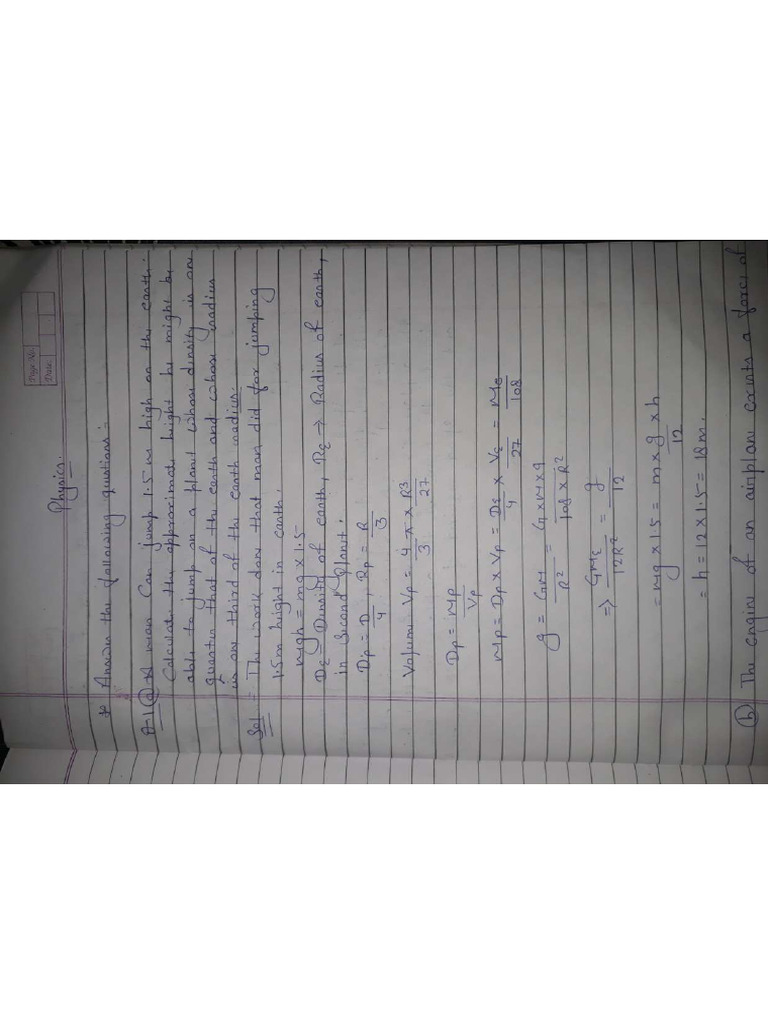 Page No.
Date
Physics.
* Answer the following questions:-
A-1 (a) A man Can jump 1.5 m high on the earth.
Calculate the approximate height he might be
able to jump on a planet whose density is one
quarter that of the earth and whose radius
is one third of the earth radius.
Sol = The work done that man did for jumping
1.5m height in earth.
mgh = mg x 1.5
DE = Density of earth, RE → Radius of earth,
in Second Planet:
Dp = D/4 , Rp = R/3
Volume Vp = 4/3 π x R3/27
Dp = Mp/Vp
Mp = Dp x Vp = DE/4 x VE/27 = ME/108
g = GM/R² = G x M x 9/108 x R²
=> GME/12R² = g/12
= mg x 1.5 = m x g/12 x h
= h = 12 x 1.5 = 18m.
(b) The engine of an airplane exerts a force of